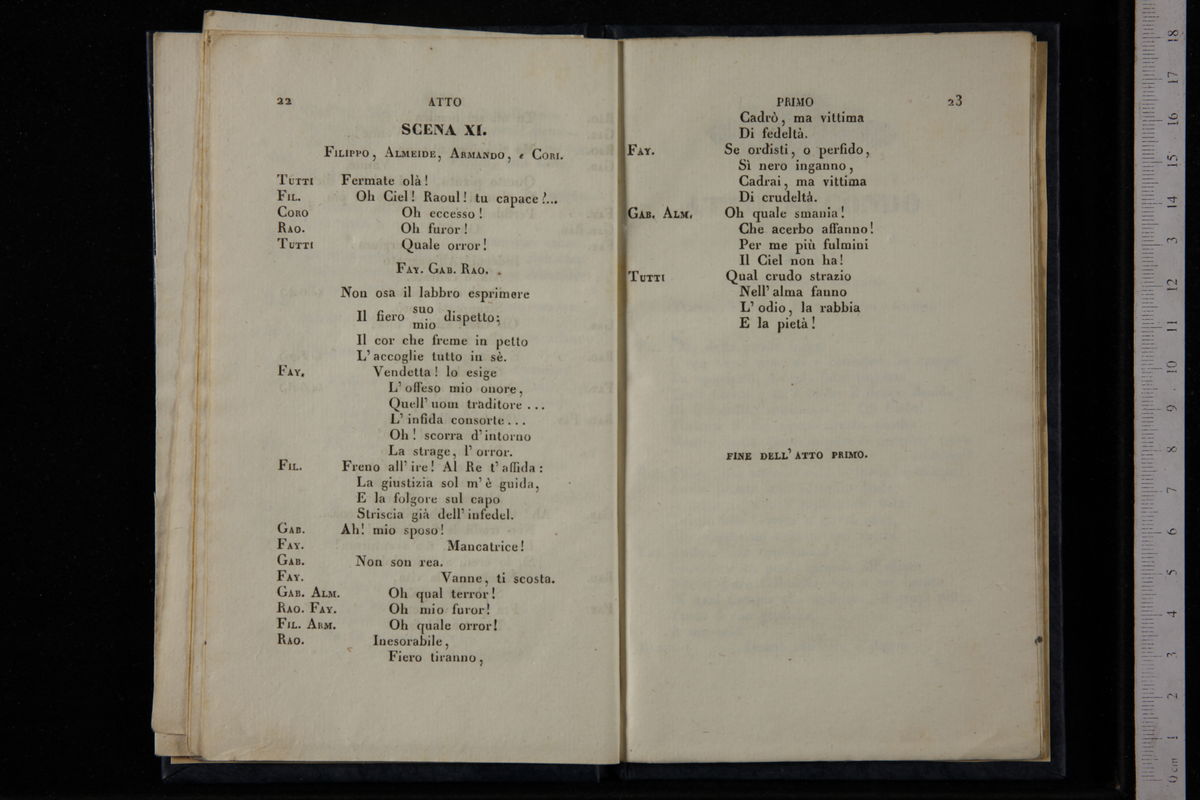 22 ATTO
SCENA XI.
FILIPPO, ALMEIDE, ARMANDO, e CORI.
TUTTI Fermate olà!
FIL. Oh Ciel! Raoul! tu capace?...
CORO Oh eccesso!
RAO. Oh furor!
TUTTI Quale orror!
FAY. GAB. RAO.
Non osa il labbro esprimere
Il fiero suo mio dispetto;
Il cor che freme in petto
L' accoglie tutto in sè.
FAY. Vendetta! lo esige
L' offeso mio onore,
Quell' uom traditore ...
L' infida consorte ...
Oh! scorra d' intorno
La strage, l' orror.
FIL. Freno all' ire! Al Re t' affida:
La giustizia sol m' è guida,
E la folgore sul capo
Striscia già dell' infedel.
GAB. Ah! mio sposo!
FAY. Mancatrice!
GAB. Non son rea.
FAY. Vanne, ti scosta.
GAB. ALM. Oh qual terror!
RAO. FAY. Oh mio furor!
FIL. ARM. Oh quale orror!
RAO. Inesorabile,
Fiero tiranno,
PRIMO 23
Cadrò, ma vittima
Di fedeltà.
FAY. Se ordisti, o perfido,
Sì nero inganno,
Cadrai, ma vittima
Di crudeltà.
GAB. ALM. Oh quale smania!
Che acerbo affanno!
Per me più fulmini
Il Ciel non ha!
TUTTI Qual crudo strazio
Nell' alma fanno
L' odio, la rabbia
E la pietà!
FINE DELL' ATTO PRIMO.
0 cm 1 2 3 4 5 6 7 8 9 10 11 12 13 14 15 16 17 18